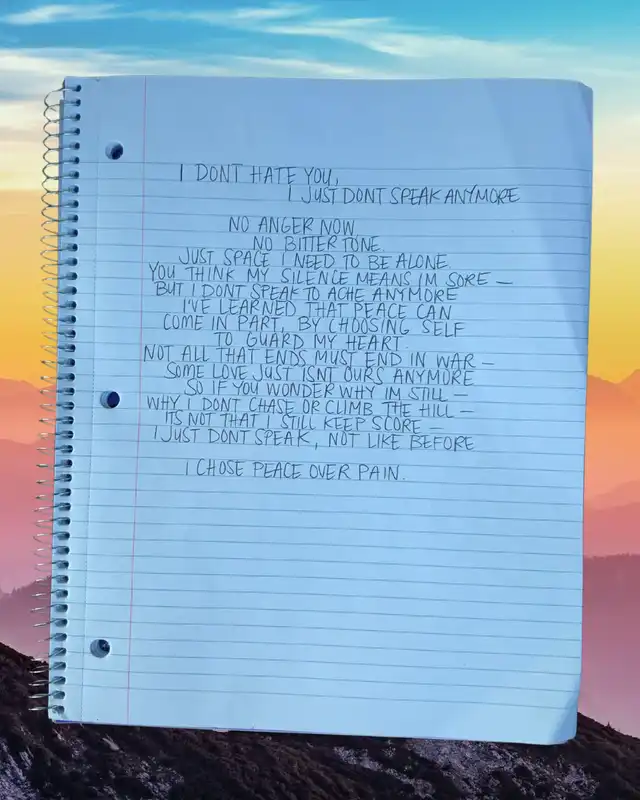 I DONT HATE YOU,
I JUST DONT SPEAK ANYMORE
NO ANGER NOW
NO BITTER TONE.
JUST SPACE I NEED TO BE ALONE.
YOU THINK MY SILENCE MEANS IM SORE —
BUT I DONT SPEAK TO ACHE ANYMORE
I'VE LEARNED THAT PEACE CAN
COME IN PART, BY CHOOSING SELF
TO GUARD MY HEART.
NOT ALL THAT ENDS MUST END IN WAR —
SOME LOVE JUST ISNT OURS ANYMORE
SO IF YOU WONDER WHY IM STILL —
WHY I DONT CHASE OR CLIMB THE HILL —
ITS NOT THAT I STILL KEEP SCORE —
I JUST DONT SPEAK, NOT LIKE BEFORE
I CHOSE PEACE OVER PAIN.